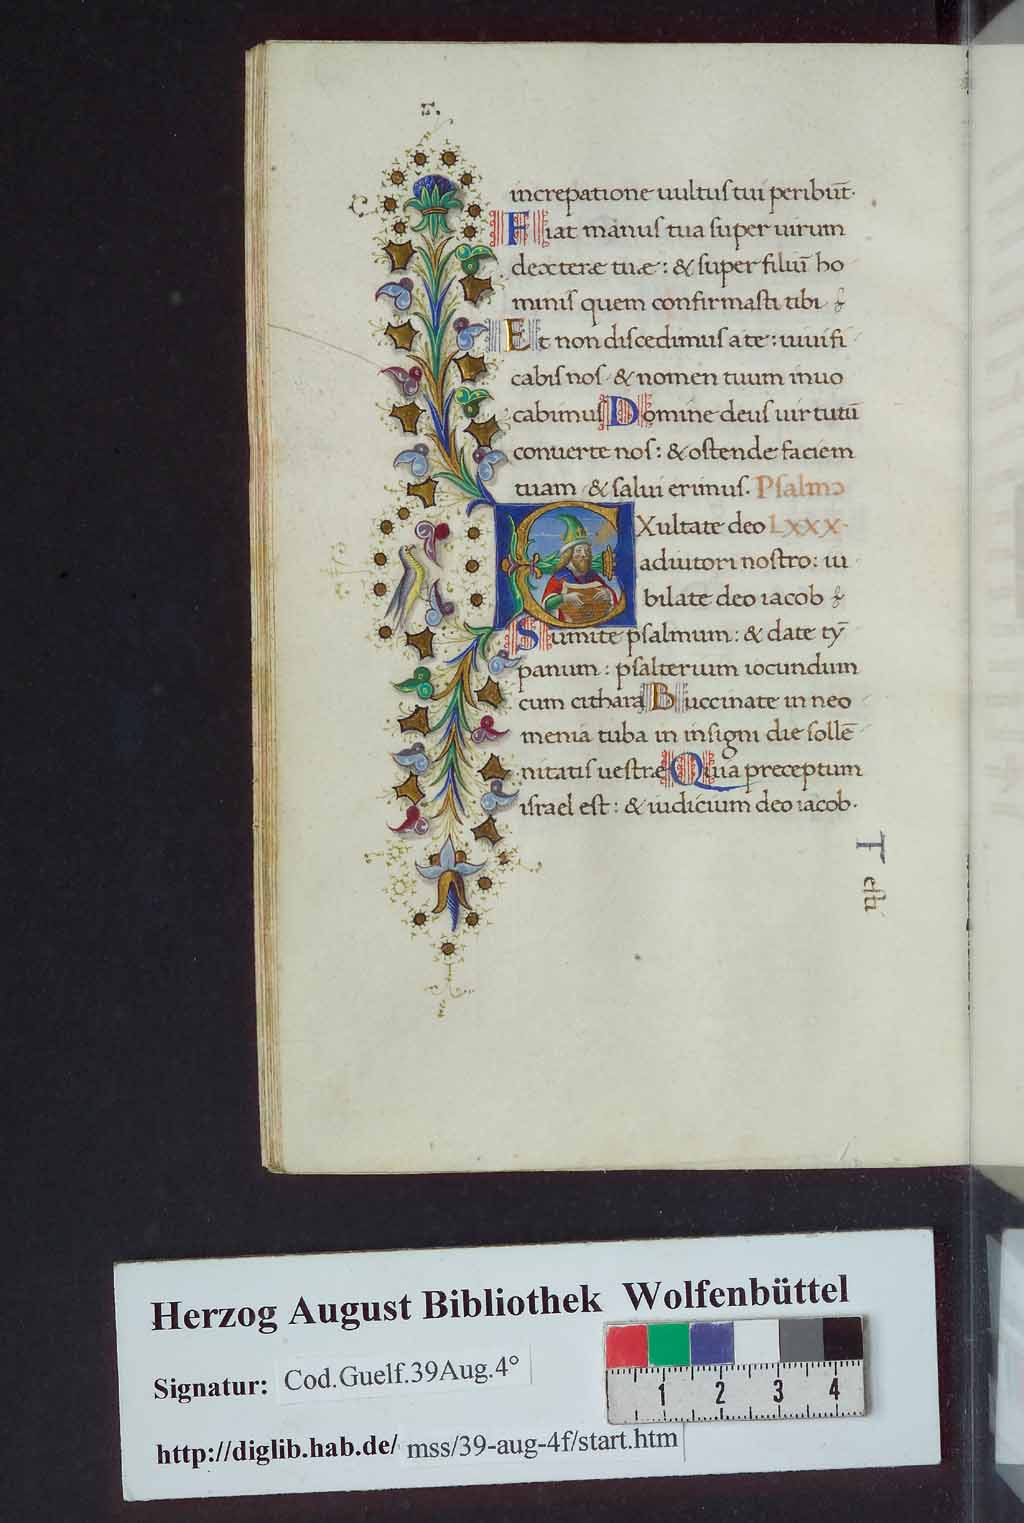 increpatione uultus tui peribūt.
Fiat manus tua super uirum
dexteræ tuæ: & super filiū ho
minis quem confirmasti tibi
Et non discedimus a te: uiuifi
cabis nos & nomen tuum inuo
cabimus Domine deus uirtutū
conuerte nos: & ostende faciem
tuam & salui erimus. Psalmo
EXultate deo LXXX.
adiutori nostro: iu
bilate deo iacob
Sumite psalmum: & date ty̅
panum: psalterium iocundum
cum cithara Buccinate in neo
menia tuba in insigni die sollē
nitatis uestrę Quia preceptum
israel est: & iudicium deo iacob.
Testi
Herzog August Bibliothek Wolfenbüttel
Signatur: Cod.Guelf.39Aug.4°
http://diglib.hab.de/ mss/39-aug-4f/start.htm
1 2 3 4